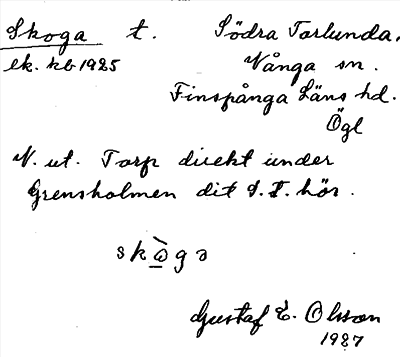 Skoga t. Södra Torlunda.
ek. kb 1925 Vånga sn.
Finspånga Läns hd.
Ögl
N. ut. Torp direkt under
Grensholmen dit S.T. hör.
skò̲gɔ
Gustaf E. Olsson
1927